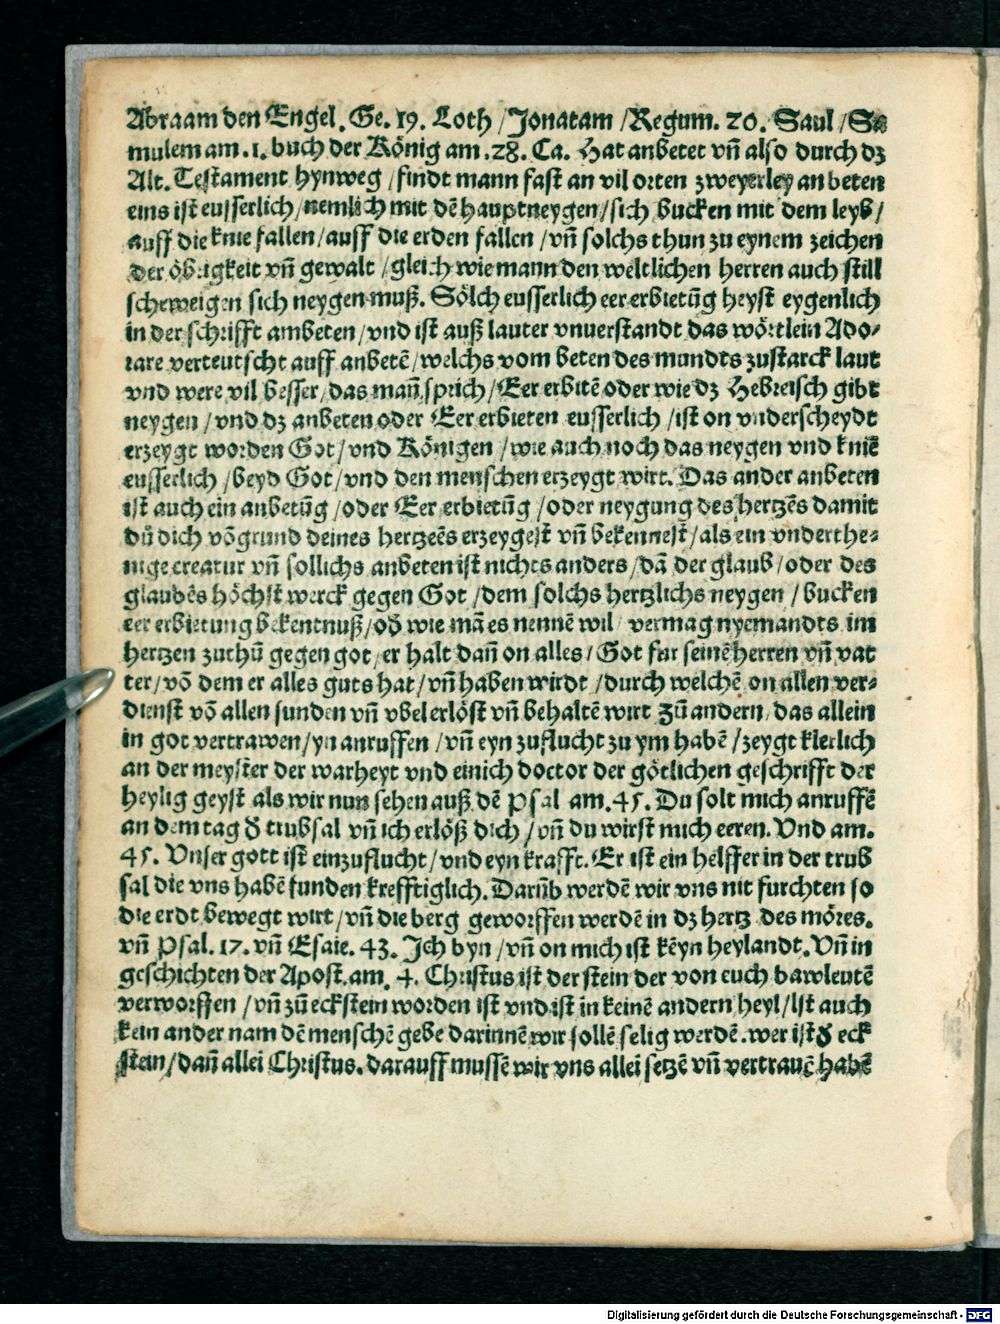 Abraam den Engel. Ge. 19. Loth / Jonatam / Regum. 20. Saul / Sa
mulem am .1. buch der König am .28. Ca. Hat anbetet vñ also durch dz
Alt. Testament hynweg / findt mann fast an vil orten zweyerley anbeten
eins ist eusserlich / nemlich mit dē hauptneygen / sich bucken mit dem leyb /
auff die knie fallen / auff die erden fallen / vñ solchs thun zu eynem zeichen
der öbrigkeit vñ gewalt / gleich wie mann den weltlichen herren auch still
scheweigen sich neygen muß. Sölch eusserlich eer erbietūg heyst eygenlich
in der schrifft ambeten / vnd ist auß lauter vnuerstandt das wörtlein Ado⸗
rare verteutscht auff anbetē / welchs vom beten des mundts zustarck laut
vnd were vil besser / das mañ sprich / Eer erbitē oder wie dz Hebreisch gibt
neygen / vnd dz anbeten oder Eer erbieten eusserlich / ist on vnderscheydt
erzeygt worden Got / vnd Königen / wie auch noch das neygen vnd kniē
eusserlich / beyd Got / vnd den menschen erzeygt wirt. Das ander anbeten
ist auch ein anbetūg / oder Eer erbietūg / oder neygung des hertzēs damit
dů dich vō grund deines hertzeēs erzeygest vñ bekennest / als ein vnderthe⸗
nige creatur vñ sollichs anbeten ist nichts anders / dā der glaub / oder des
glaubēs höchst werck gegen Got / dem solchs hertzlichs neygen / bucken
eer erbietung bekentnuß / oð wie mā es nennē wil / vermag nyemandts im
hertzen zuthů gegen got / er halt dañ on alles / Got fur seinē herren vñ vat
ter / vō dem er alles guts hat / vñ haben wirdt / durch welchē on allen ver⸗
dienst vō allen sunden vñ vbel erlöst vñ behaltē wirt Zů andern / das allein
in got vertrawen / yn anruffen / vñ eyn zuflucht zu ym habē / zeygt klerlich
an der meyster der warheyt vnd einich doctor der götlichen geschrifft der
heylig geyst als wir nun sehen auß dē Psal am. 45. Du solt mich anruffē
an dem tag ð trubsal vñ ich erlöß dich / vñ du wirst mich eeren. Vnd am.
45. Vnser gott ist ein zuflucht / vnd eyn krafft. Er ist ein helffer in der trub
sal die vns habē funden krefftiglich. Darūb werdē wir vns nit furchten so
die erdt bewegt wirt / vñ die berg geworffen werdē in dz hertz des möres.
vñ Psal. 17. vñ Esaie. 43. Ich byn / vñ on mich ist kēyn heylandt. Vñ in
geschichten der Apost. am. 4. Christus ist der stein der von euch bawleutē
verworffen / vñ zů eckstein worden ist vnd ist in keinē andern heyl / Ist auch
kein ander nam dē menschē gebē darinnē wir sollē selig werdē. wer ist ð eck
stein / dañ allei Christus. darauff mussē wir vns allei setzē vñ vertrauē habē
Digitalisierung gefördert durch die Deutsche Forschungsgemeinschaft - DFG